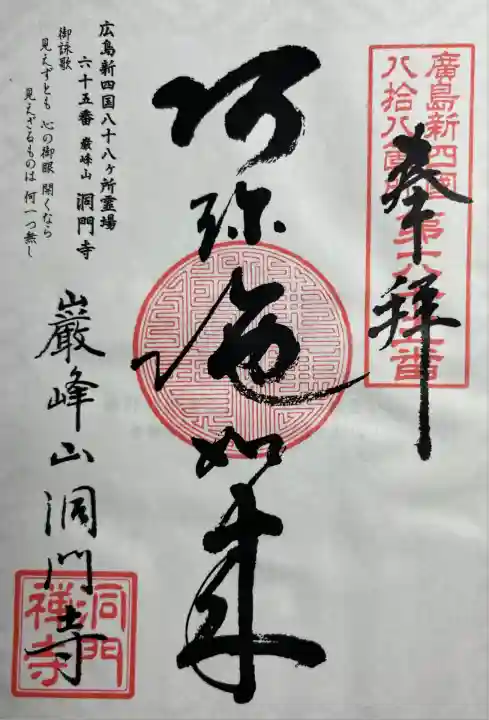 奉拝
廣島新四國
八拾八ヶ所第六十五番
阿弥陀如来
広島新四国八十八ヶ所霊場
六十五番 巌峰山 洞門寺
御詠歌
見えずとも 心の御眼 開くなら
見えざるものは 何一つ無し
巖峰山洞門寺
洞門
禅寺